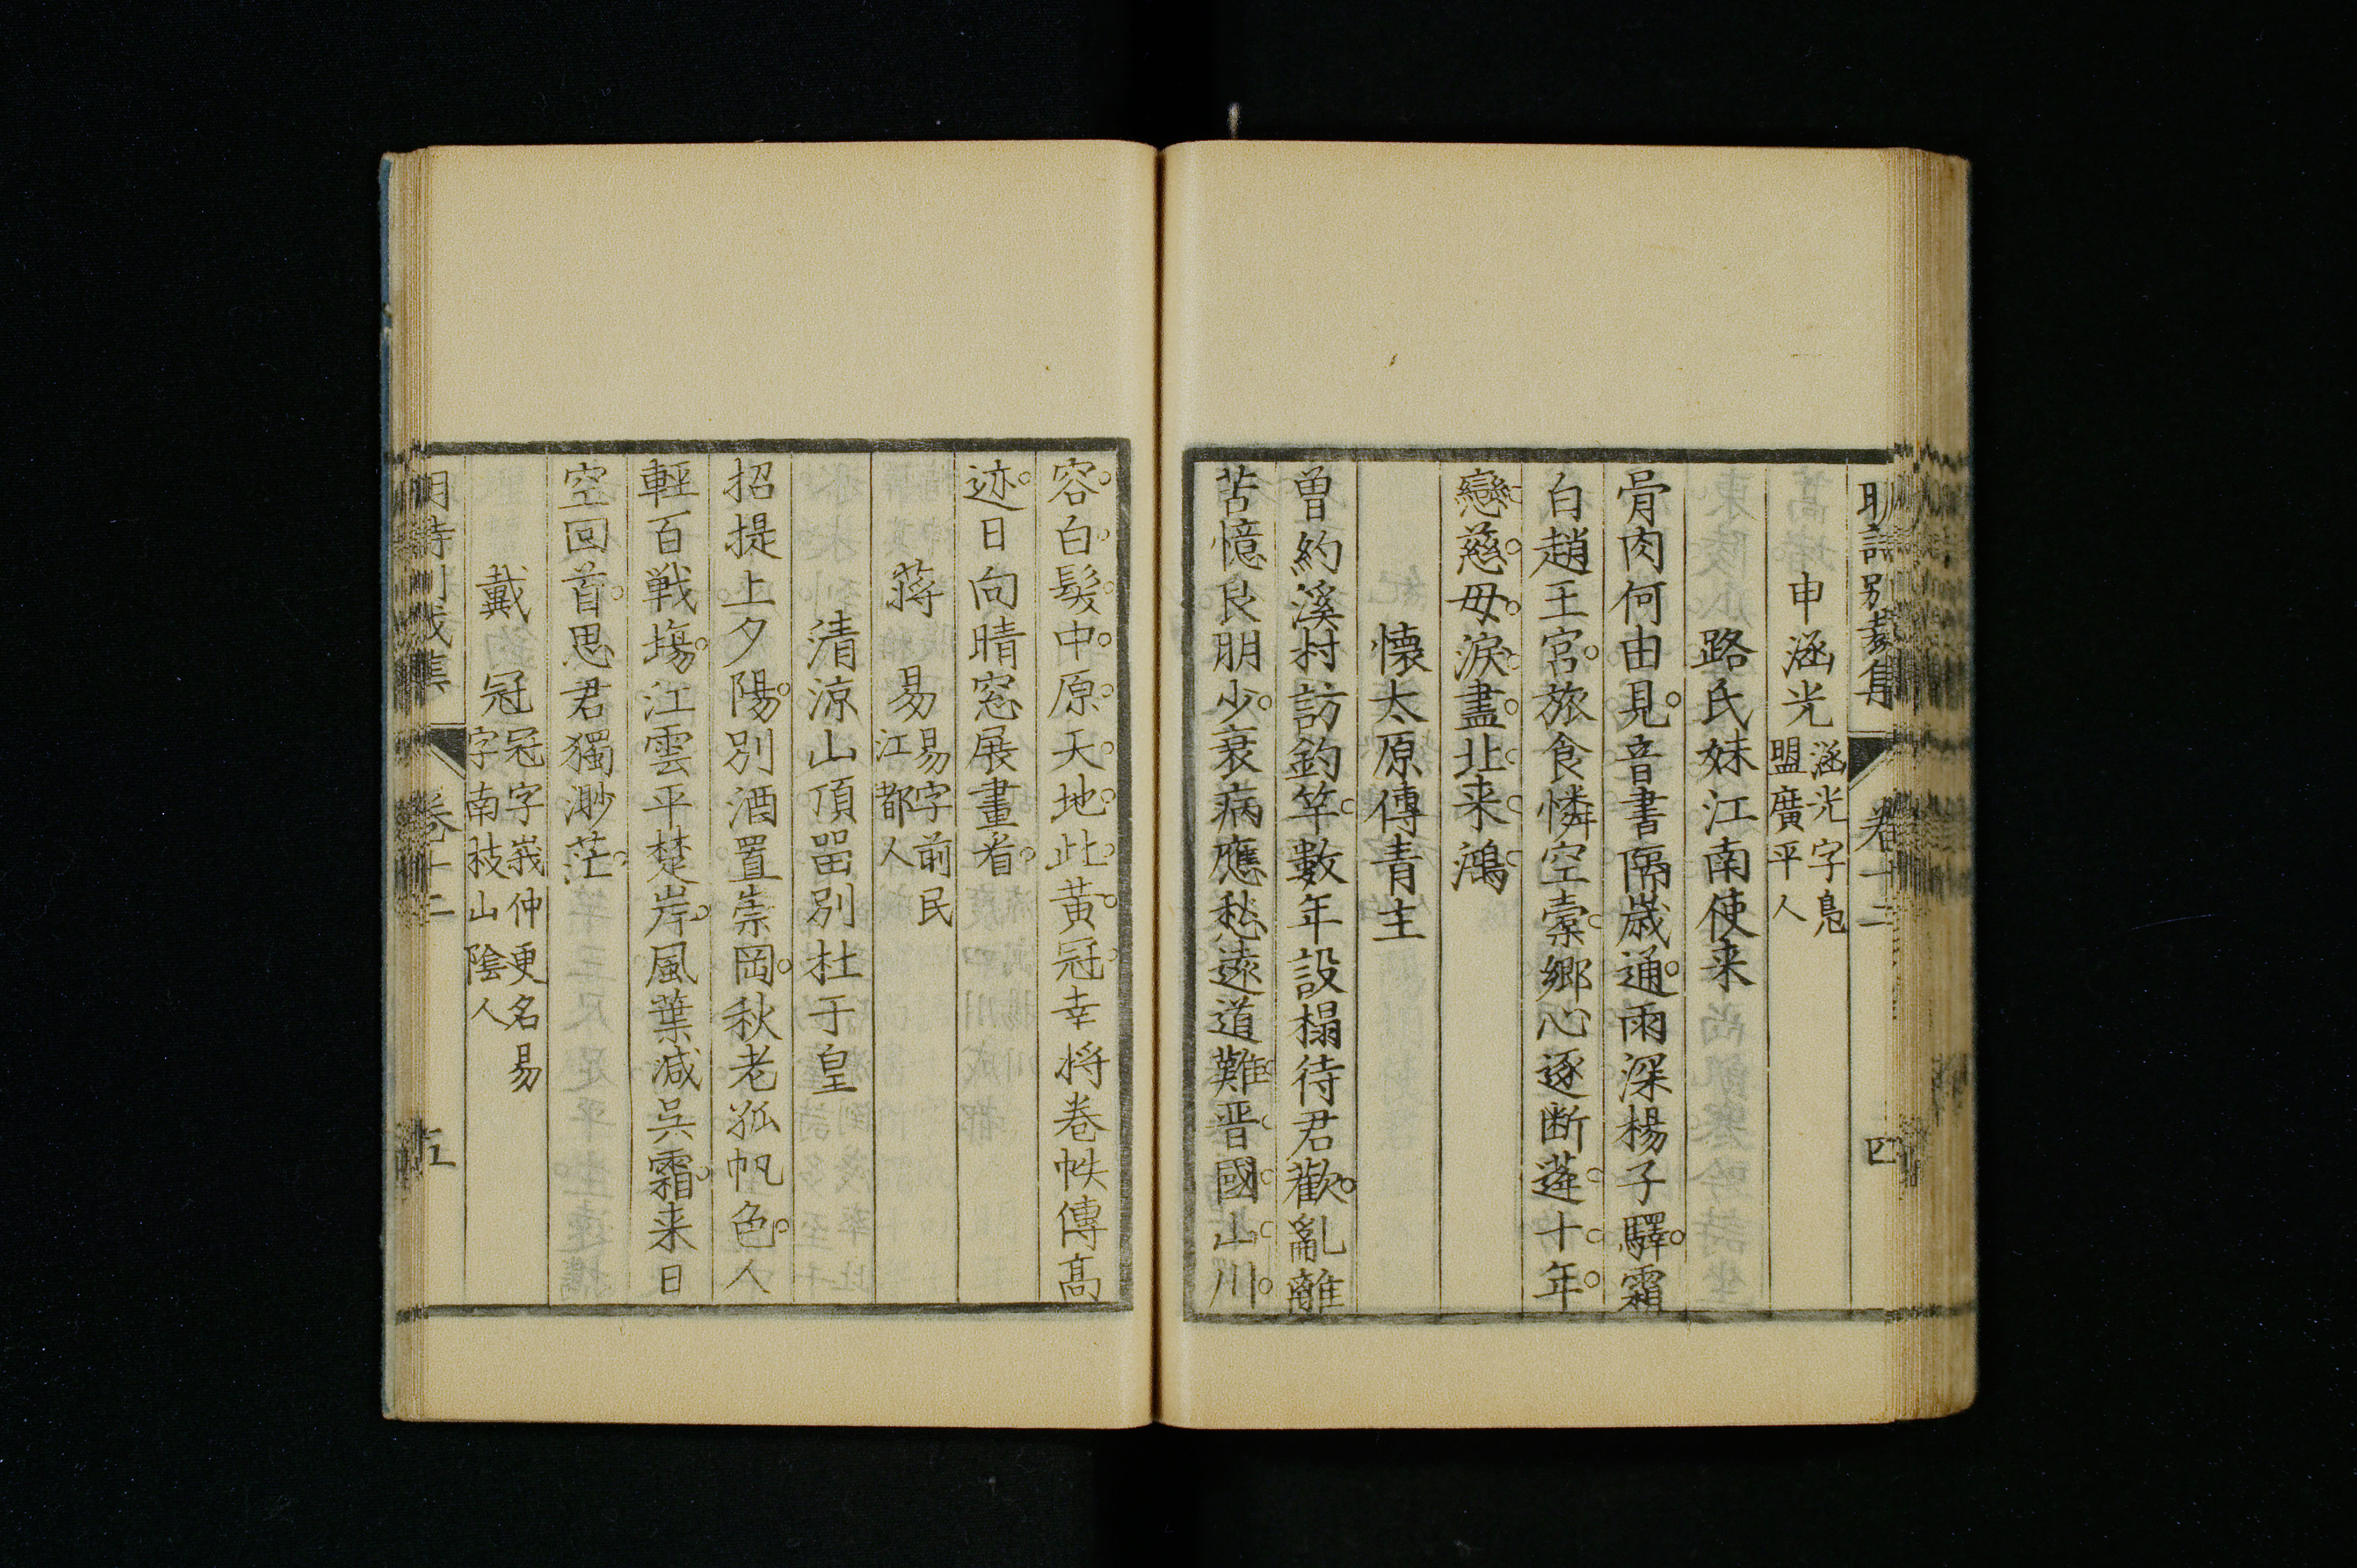 明詩別裁集 卷十二 四
申涵光 涵光字鳧
盟廣平人
路氏妹江南使来
骨肉何由見音書隔歳通雨深楊子驛霜
白趙王宮旅食憐空橐鄉心逐断蓬十年
戀慈母淚盡北来鴻
懐太原傳青主
曽約溪村訪釣竿數年設榻待君歡亂離
苦憶良朋少衰病應愁遠道難晋國山川
容白髪中原天地此黄冠幸将卷帙傳髙
迹日向晴窓展畫看
蔣易 易字前民
江都人
清涼山頂畱別杜于皇
招提上夕陽別酒置崇岡秋老孤帆色人
輕百戦塲江雲平楚岸風葉減呉霜来日
空回首思君獨渺茫
戴冠 冠字峩仲更名易
字南枝山陰人
明詩別裁集 卷十二 五